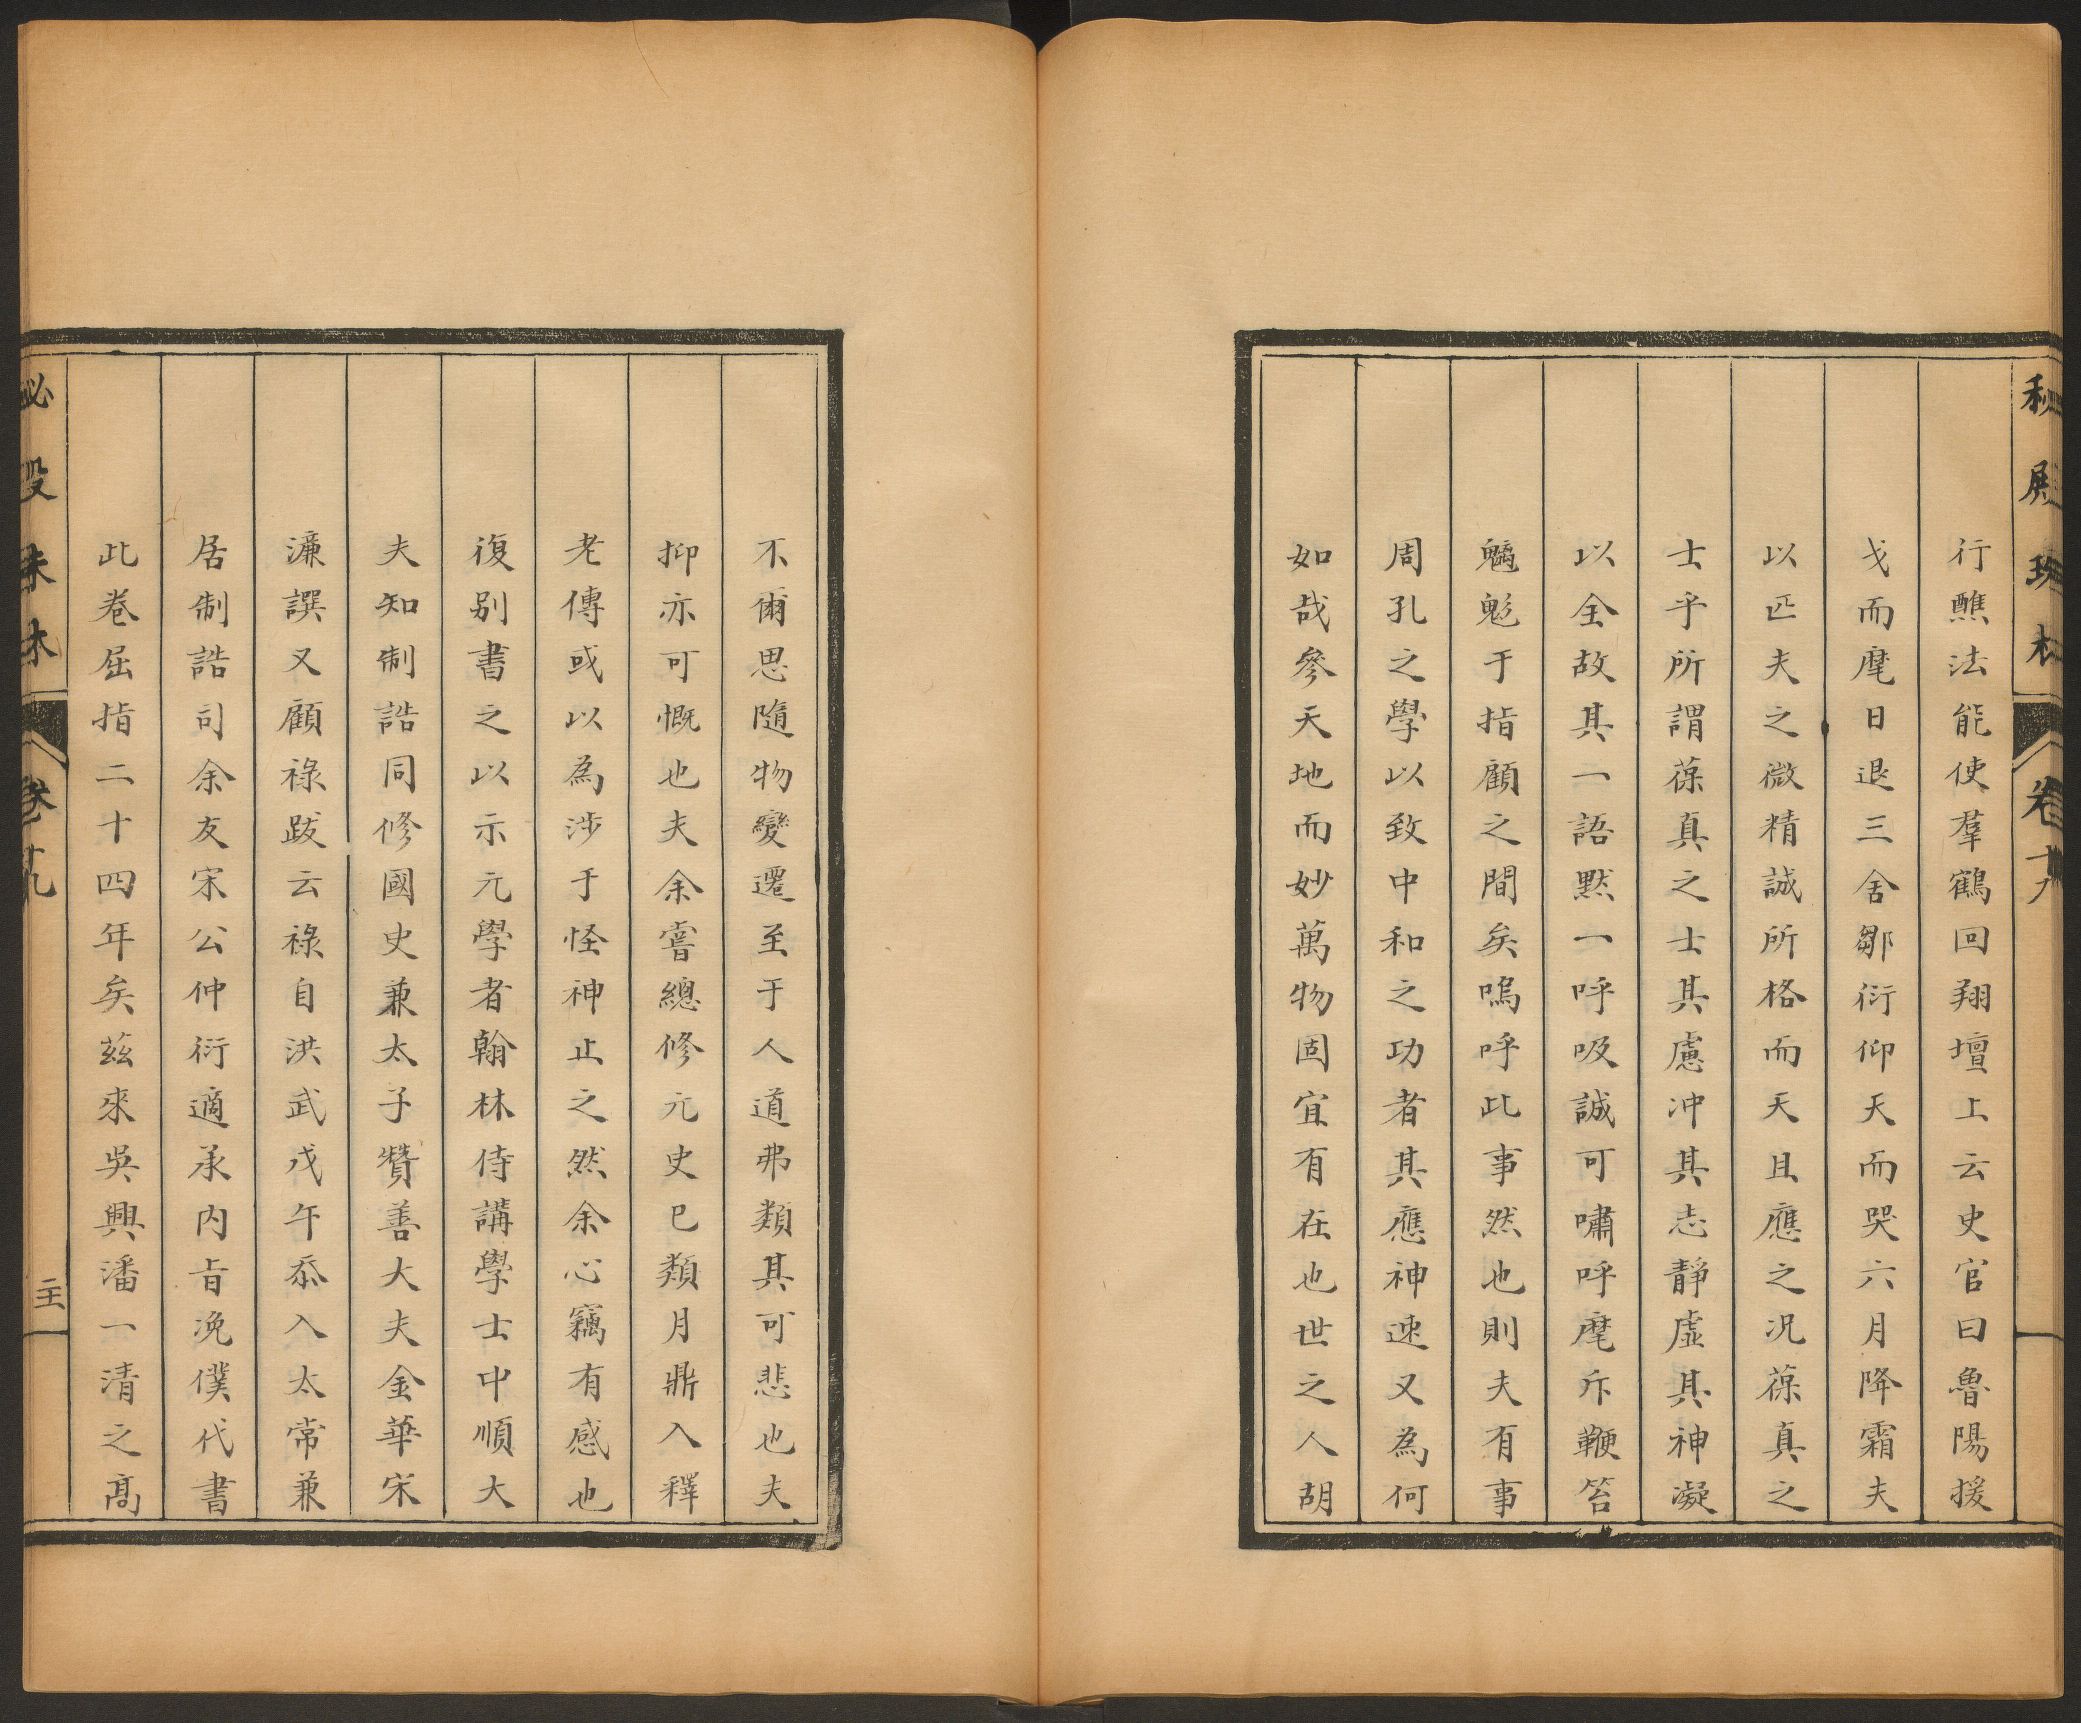 行醮法能使羣鶴回翔壇上云史官曰魯陽援
戈而麾日退三舍鄒衍仰天而哭六月降霜夫
以匹夫之微精誠所格而天且應之況葆真之
士乎所謂葆真之士其慮冲其志靜虛其神凝
以全故其一語默一呼吸誠可嘯呼麾斥鞭笞
魑魅于指顧之間矣嗚呼此事然也則夫有事
周孔之學以致中和之功者其應神速又為何
如哉參天地而妙萬物固宜有在也世之人胡
不爾思隨物變遷至于人道弗類其可悲也夫
抑亦可慨也夫余嘗總修元史已類月鼎入釋
老傳或以為涉于怪神止之然余心竊有感也
復别書之以示元學者翰林侍講學士中順大
夫知制誥同修國史兼太子贊善大夫金華宋
濂譔又顧祿跋云祿自洪武戊午忝入太常兼
居制誥司余友宋公仲衍適承内旨浼僕代書
此卷屈指二十四年矣茲來吳興潘一清之高
卷十九